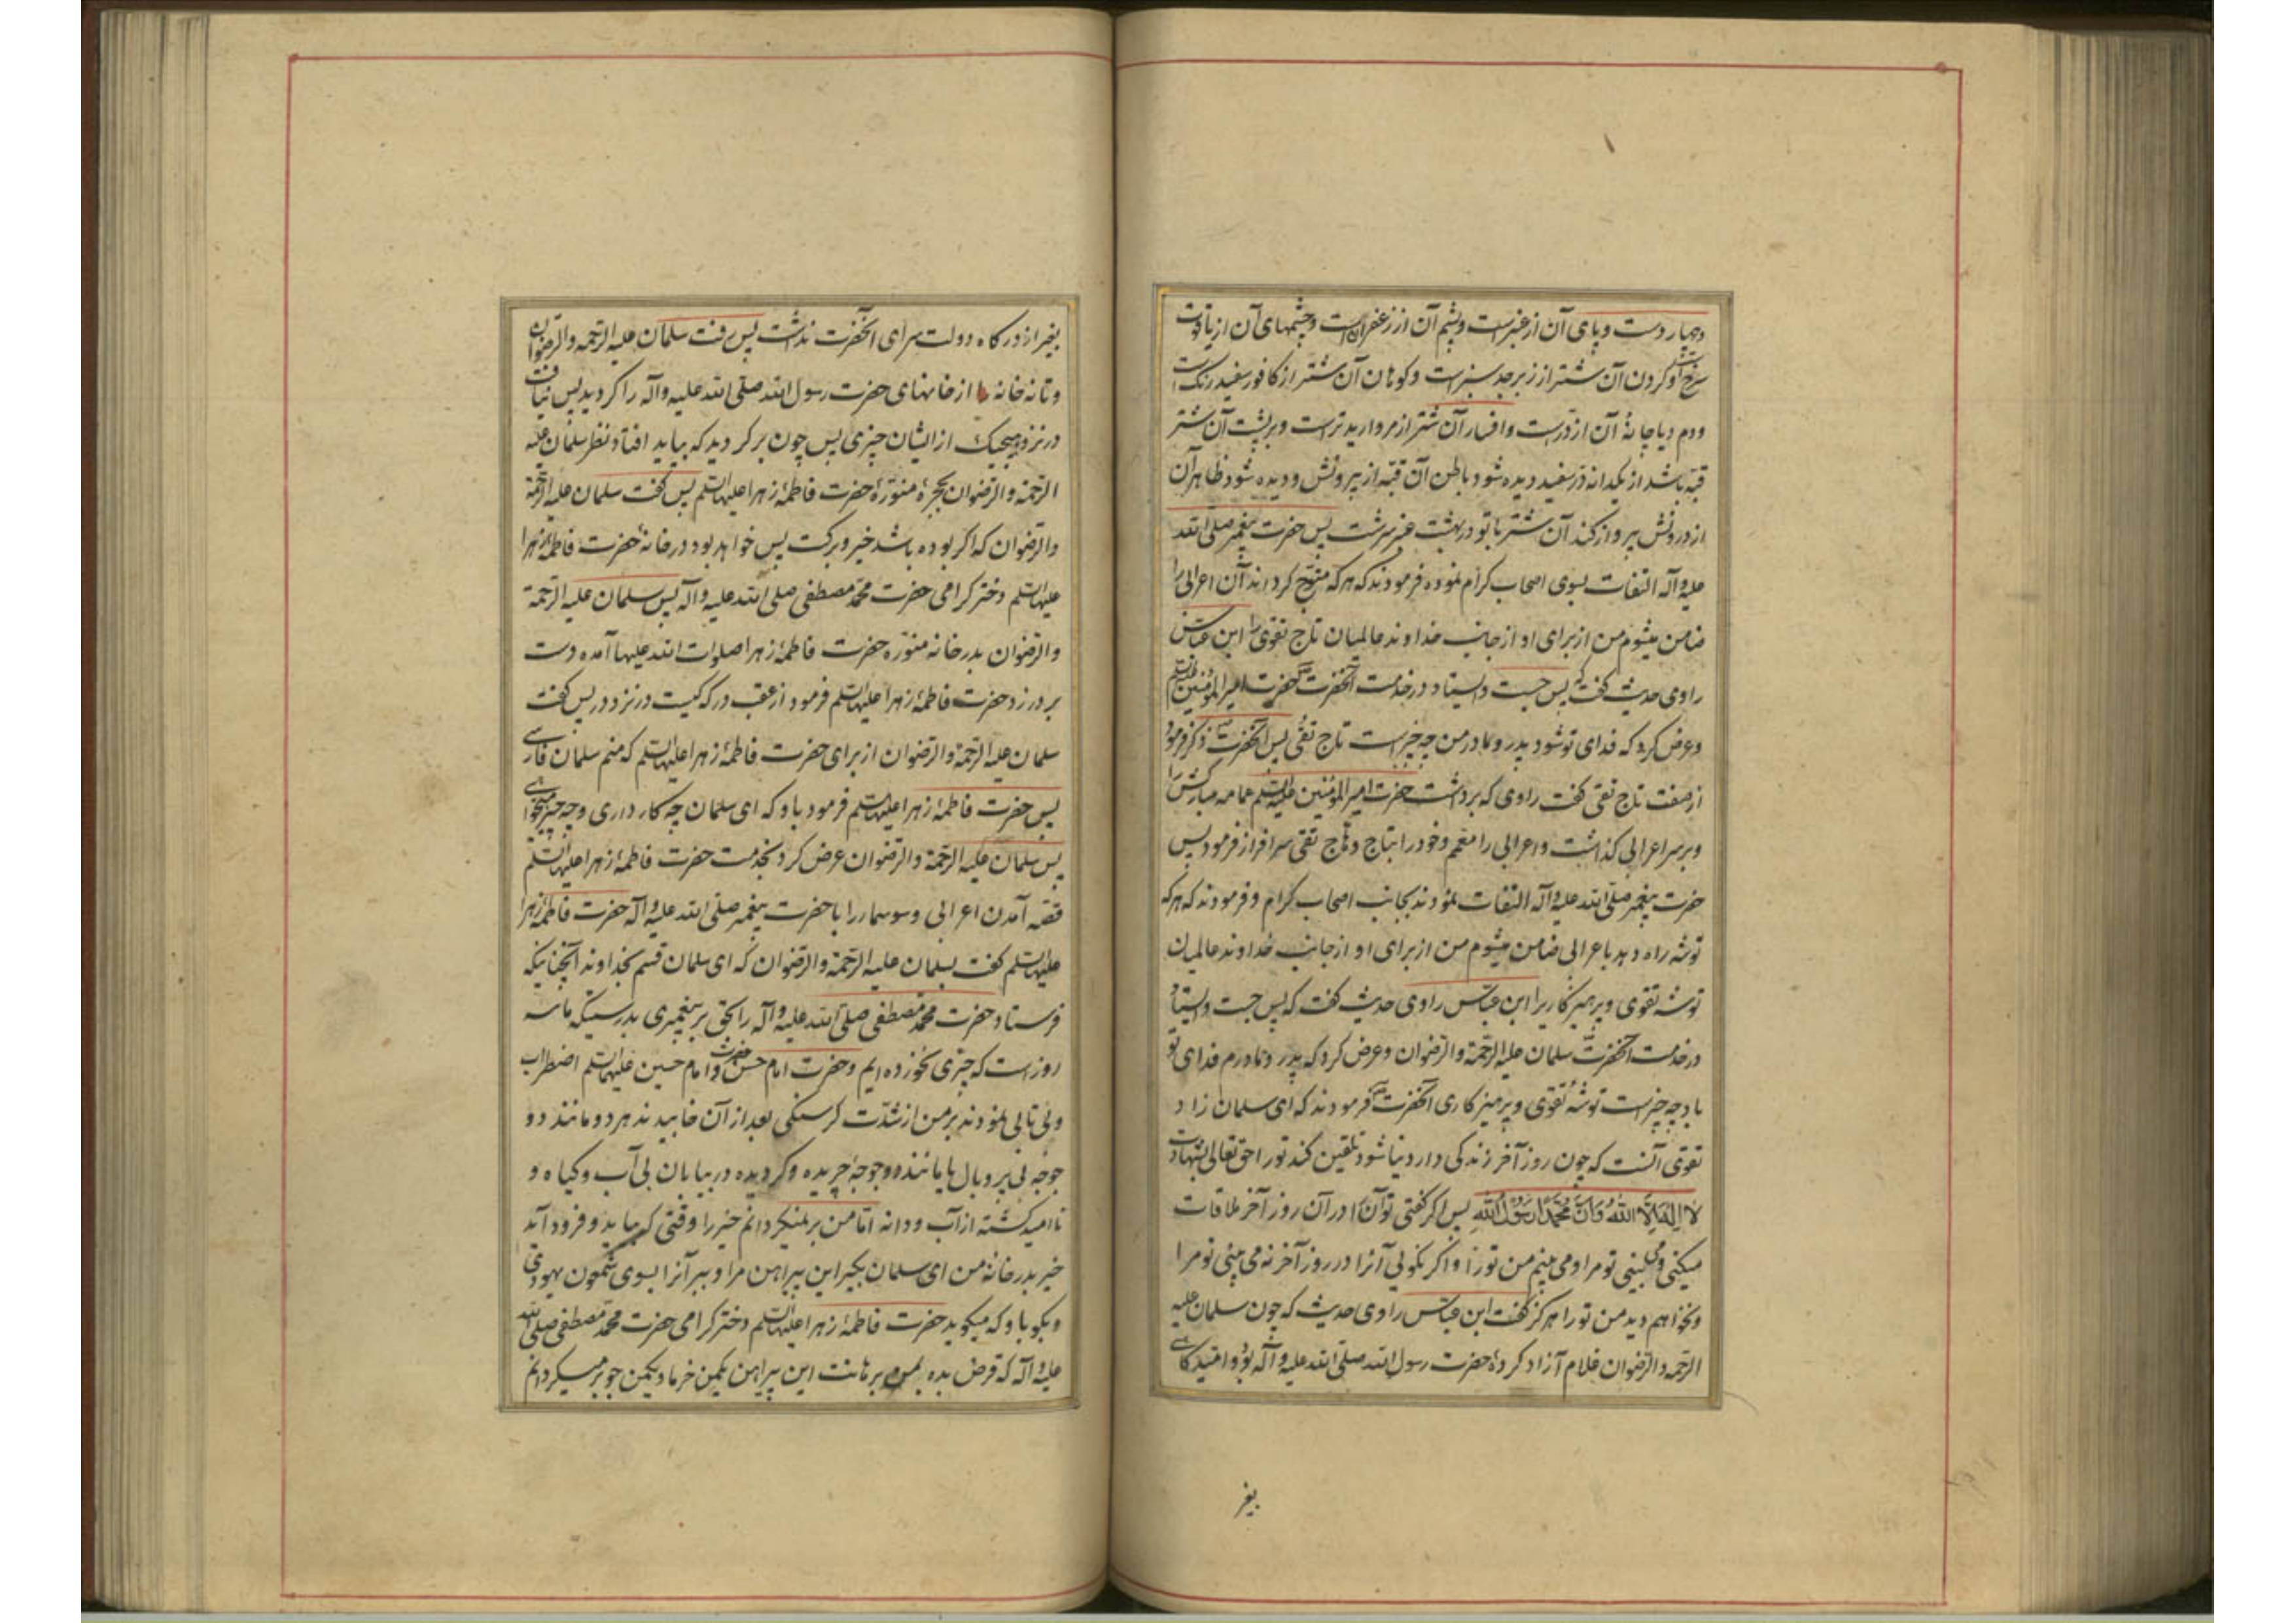 و چهار دست و پای آن از عنبرست و پشم آن از زعفران است و چشمهای آن از یاقوت
سرخ است و گردن آن شتر از زبرجد سبزست و کوهان آن شتر از کافور سفید رنگ است
و دم آن از درست و افسار آن شتر از مروارید ترست و بر پشت آن شتر
قبه باشد از یکدانه در سفید دیده شود باطن آن قبه از بیرونش و دیده شود ظاهر آن
از درونش پرواز کند آن شتر با تو در بهشت عنبر سرشت پس حضرت پیغمبر صلی الله
علیه و آله التفات بسوی اصحاب کرام نموده فرمودند که هر که متوج گرداند آن اعرابی را
ضامن میشوم من از برای او از جانب خداوند عالمیان تاج تقوی را ابن عباس
راوی حدیث گفت که پس جست و ایستاد در خدمت آنحضرت حضرت امیر المؤمنین علیه السلم
و عرض کرد که فدای تو شود پدر و مادر من چه چیزست تاج تقی پس آنحضرت ذکر فرمود
از صفت تاج تقی گفت راوی که برداشت حضرت امیر المؤمنین علیه السلم عمامه مبارکش را
و بر سر اعرابی گذاشت و اعرابی را معمم و خود را بتاج و هاج تقی سرافراز فرمود پس
حضرت پیغمبر صلی الله علیه و آله التفات نمودند بجانب اصحاب کرام و فرمودند که هر که
توشه راه دهد باعرابی ضامن میشوم من از برای او از جانب خداوند عالمیان
توشه تقوی و پرهیزکاریرا ابن عباس راوی حدیث گفت که پس جست و ایستاد
در خدمت آنحضرت سلمان علیه الرحمة و الرضوان و عرض کرد که پدر و مادرم فدای تو
باد چه چیزست توشه تقوی و پرهیزکاری آنحضرت فرمودند که ای سلمان زاد
تقوی آنست که چون روز آخر زندگی دار دنیا شود تلقین کند تو را حق تعالی شهادت
لا اله الا الله و ان محمدا رسول الله پس اگر گفتی تو آنرا در آن روز آخر ملاقات
میکنی و می بینی تو مرا و می بینم من تو را و اگر نگوئی آنرا در روز آخر نه می بینی تو مرا
و نخواهم دید من تو را هرگز گفت ابن عباس راوی حدیث که چون سلمان علیه
الرحمه و الرضوان غلام آزاد کرده حضرت رسول الله صلی الله علیه و آله بود و امیدگاهی
بغیر
بغیر از درگاه دولت سرای آنحضرت نداشت پس رفت سلمان علیه الرحمه و الرضوان
و تا نه خانه از خانهای حضرت رسول الله صلی الله علیه و آله را گردید پس نیافت
در نزد هیچیک از ایشان چیزی پس چون برگردید که بیاید افتاد نظر سلمان علیه
الرحمة و الرضوان بحجره منوره حضرت فاطمه زهرا علیها السلم پس گفت سلمان علیه الرحمة
و الرضوان که اگر بوده باشد خیر و برکت پس خواهد بود در خانه حضرت فاطمه زهرا
علیها السلم دختر گرامی حضرت محمد مصطفی صلی الله علیه و آله پس سلمان علیه الرحمة
و الرضوان بدر خانه منوره حضرت فاطمه زهرا صلوات الله علیها آمده دست
بر در زد حضرت فاطمه زهرا علیها السلم فرمود از عقب در که کیست در نزد در پس گفت
سلمان علیه الرحمة و الرضوان از برای حضرت فاطمه زهرا علیها السلم که منم سلمان فارسی
پس حضرت فاطمه زهرا علیها السلم فرمود باو که ای سلمان چه کار داری و چه چیز میخواهی
پس سلمان علیه الرحمة و الرضوان عرض کرد بخدمت حضرت فاطمه زهرا علیها السلم
قصه آمدن اعرابی و سوسمار را با حضرت پیغمبر صلی الله علیه و آله حضرت فاطمه زهرا
علیها السلم گفت بسلمان علیه الرحمة و الرضوان که ای سلمان قسم بخداوند آنچنانیکه
فرستاد حضرت محمد مصطفی صلی الله علیه و آله را بحق بر پیغمبری بدرستیکه ما سه
روزست که چیزی نخورده ایم و حضرت امام حسن و حضرت امام حسین علیهما السلم اضطراب
و بی تابی نمودند بر من از شدت گرسنگی بعد از آن خابیدند هر دو مانند دو
جوجه بی پر و بال یا مانند دو جوجه پریده و گردیده در بیابان بی آب و گیاه و
نا امید گشته از آب و دانه اما من بر نمیگردانم خیر را وقتی که بیاید و فرود آید
خیر بدر خانه من ای سلمان بگیر این پیراهن مرا و ببر آنرا بسوی شمعون یهودی
و بگو باو که میگوید حضرت فاطمه زهرا علیها السلم دختر گرامی حضرت محمد مصطفی صلی الله
علیه و آله که قرض بده بمن بر هانت این پیراهن یکمن خرما و یکمن جو بر میگردانم